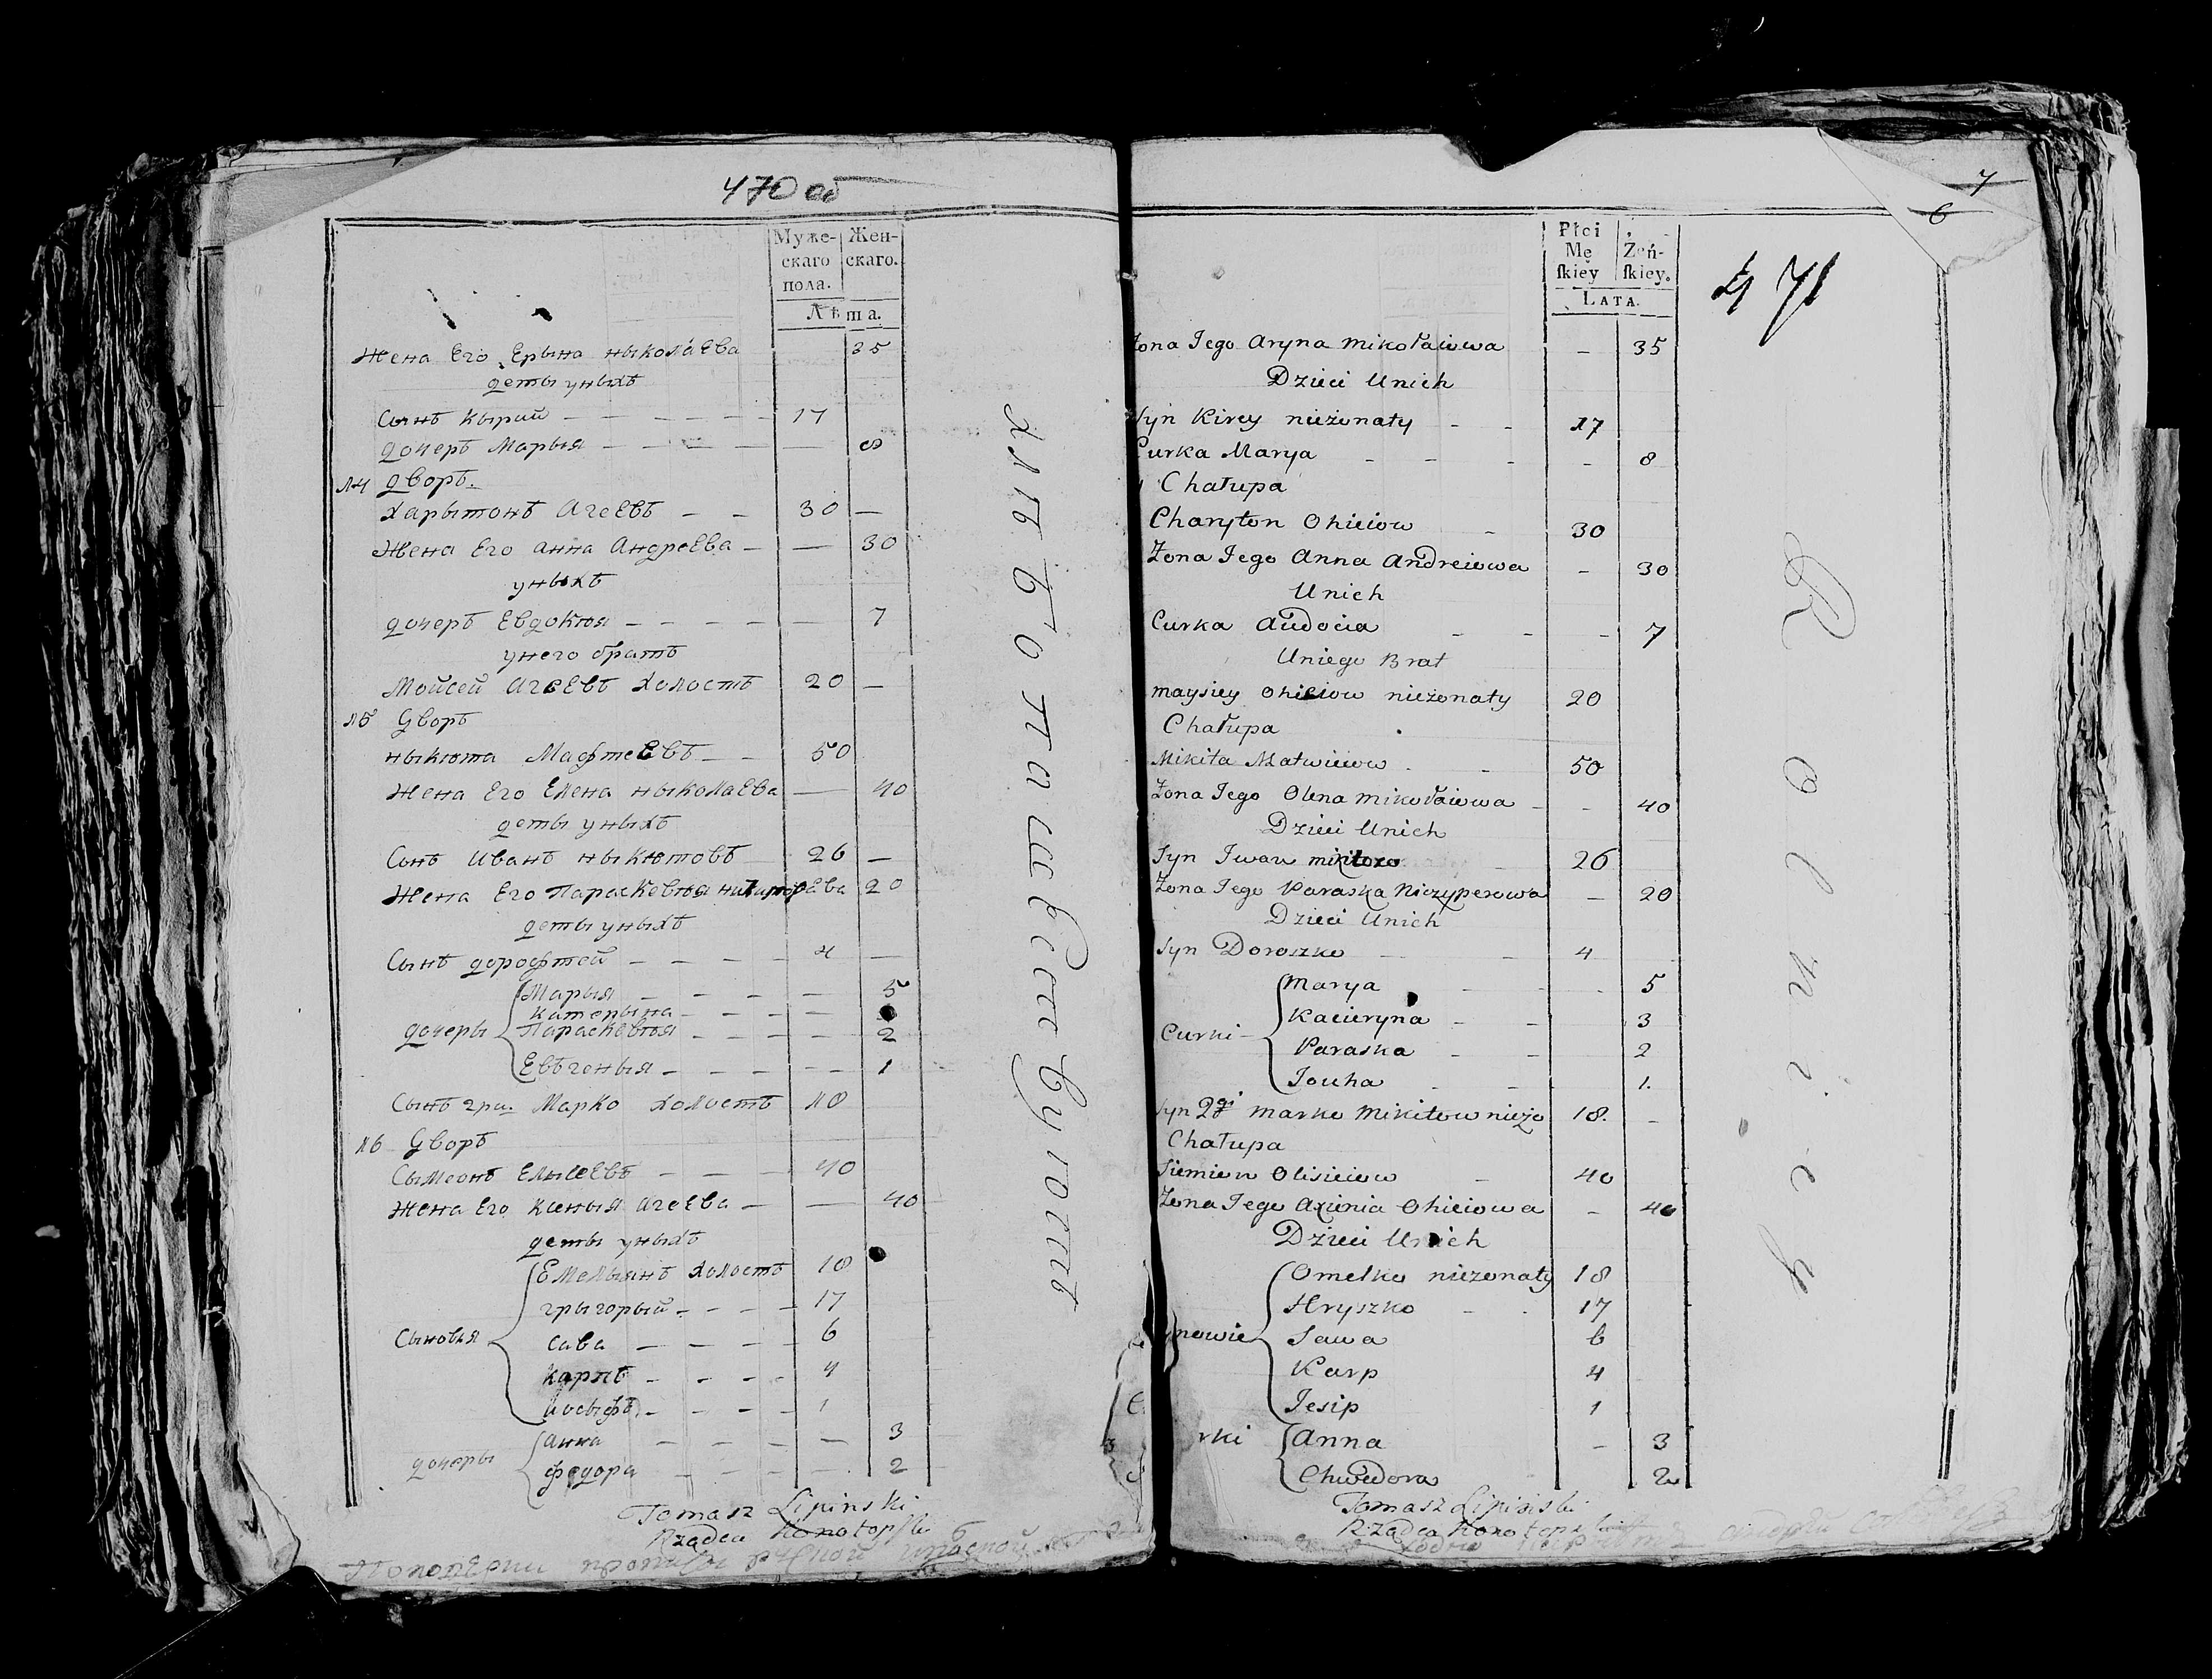 470 об
Муже-
скаго
пола.
Жен-
скаго.
Лѣта.
Жена Его Ерына ныколаева 35
деты уныхъ
Сынъ Кырий 17
дочеръ Марыя 8
14 дворъ.
Харытонъ Агеевъ 30
Жена Его Анна Андреева 30
уныхъ
дочеръ Евдокюя 7
унего братъ
Мойсей Агеевъ холостъ 20
15 Дворъ
ныкюта Мафтеевъ 50
Жена Его Елена ныколаева 40
деты уныхъ
Сынъ Иванъ ныкютовъ 26
Жена Его Параскевюя 20
деты уныхъ
Сынъ дорофтей 4
дочеры
Марыя 5
Катерына
Параскевюя 2
Евъгенья 1
Сынъ Марко холостъ 18
16 Дворъ
Сымеонъ Елысеевъ 40
Жена Его Ксенья Агеева 40
деты уныхъ
Сыновья
Емельянъ холостъ 18
грыгорый 17
Сава 6
Карпъ 4
Иосыфъ 1
дочеры
Анна 3
федора 2
Tomasz Lipinski
Rządca Konotopski
хлѣбопашествуютъ
7
6
471
Płci
Mę
ſkiey
Żeń-
ſkiey.
LATA.
Żona Jego Aryna Mikołaiowa 35
Dzieci Unich
Syn Kirey nieżonaty 17
Curka Marya 8
Chałupa
Charyton Ohieiow 30
Żona Jego Anna Andreiowa 30
Unich
Curka Audocia 7
Uniego Brat
Maysiey Ohieiow nieżonaty 20
Chałupa
Mikita Matwieiow 50
Żona Jego Olena Mikołaiowa 40
Dzieci Unich
Syn Iwan 26
Żona Jego Paraska Niczyperowa 20
Dzieci Unich
Syn Doroszko 4
Curki
Marya 5
Kacieryna 3
Paraska 2
Jouha 1.
Syn 2gi Marko Mikitow nieżo 18.
Chałupa
Siemien Olisieiow 40
Żona Jego Axienia Ohieiowa 40
Dzieci Unich
Synowie
Omelko nieżonaty 18
Hryszko 17
Sawa 6
Karp 4
Jesip 1
rki
Anna 3
Chwedora 2
Tomasz Lipinski
Rządca Konotopski
Rolnicy